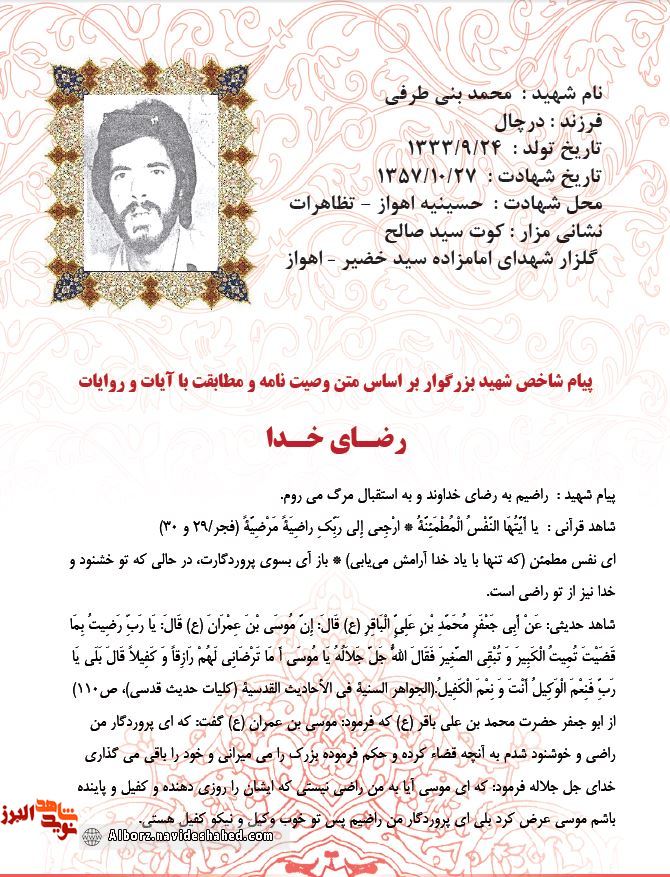 نام شهید : محمد بنی طرفی
فرزند : درچال
تاریخ تولد : ۱۳۳۳/۹/۲۴
تاریخ شهادت : ۱۳۵۷/۱۰/۲۷
محل شهادت : حسینیه اهواز - تظاهرات
نشانی مزار : کوت سید صالح
گلزار شهدای امامزاده سید خضیر - اهواز
پیام شاخص شهید بزرگوار بر اساس متن وصیت نامه و مطابقت با آیات و روایات
رضــای خــدا
پیام شهید : راضیم به رضای خداوند و به استقبال مرگ می روم.
شاهد قرآنی : یا أَیَّتُهَا النَّفْسُ الْمُطْمَئِنَّةُ * ارْجِعی إِلی رَبِّکِ راضِیَةً مَرْضِیَّةً (فجر/۲۹ و ۳۰)
ای نفس مطمئن (که تنها با یاد خدا آرامش می‌یابی) * باز آی بسوی پروردگارت، در حالی که تو خشنود و
خدا نیز از تو راضی است.
شاهد حدیثی: عَنْ أَبِی جَعْفَرٍ مُحَمَّدِ بْنِ عَلِیٍّ الْبَاقِرِ (ع) قَالَ: إِنَّ مُوسَی بْنَ عِمْرَانَ (ع) قَالَ: یَا رَبِّ رَضِیتُ بِمَا
قَضَیْتَ تُمِیتُ الْکَبِیرَ وَ تُبْقِی الصَّغِیرَ فَقَالَ اللهُ جَلَّ جَلَالُهُ یَا مُوسَی أَ مَا تَرْضَانِی لَهُمْ رَازِقاً وَ کَفِیلاً قَالَ بَلَی یَا
رَبِّ فَنِعْمَ الْوَکِیلُ أَنْتَ وَ نِعْمَ الْکَفِیلُ.(الجواهر السنیة فی الأحادیث القدسیة (کلیات حدیث قدسی)، ص۱۱۰)
از ابو جعفر حضرت محمد بن علی باقر (ع) که فرمود: موسی بن عمران (ع) گفت: که ای پروردگار من
راضی و خوشنود شدم به آنچه قضاء کرده و حکم فرموده بزرگ را می میرانی و خود را باقی می گذاری
خدای جل جلاله فرمود: که ای موسی آیا به من راضی نیستی که ایشان را روزی دهنده و کفیل و پاینده
باشم موسی عرض کرد بلی ای پروردگار من راضیم پس تو خوب وکیل و نیکو کفیل هستی.
نوید شاهد البرز
Alborz.navideshahed.com